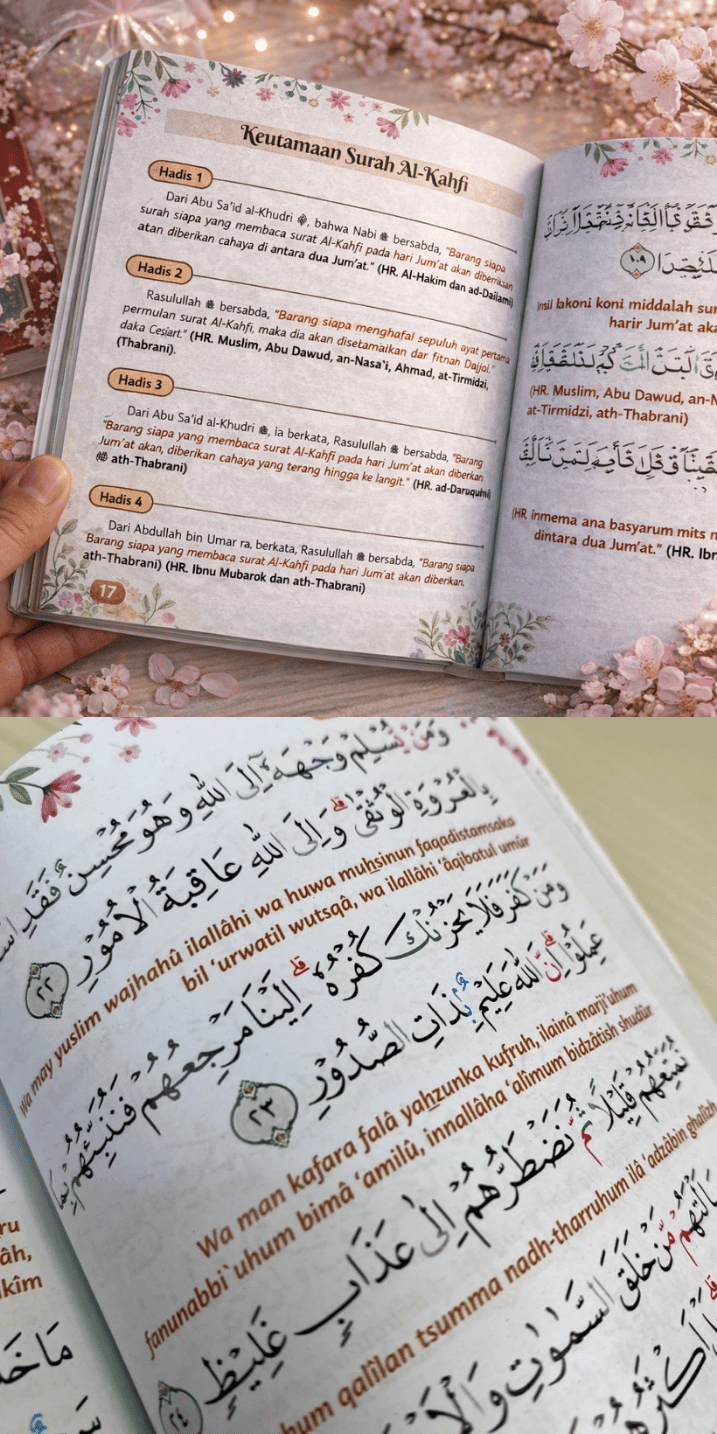 Keutamaan Surah Al-Kahfi
Hadis 1
Dari Abu Sa'id al-Khudri ﷺ, bahwa Nabi ﷺ bersabda, "Barang siapa
surah siapa yang membaca surat Al-Kahfi pada hari Jum'at akan diberiksan
atan diberikan cahaya di antara dua Jum'at." (HR. Al-Hakim dan ad-Dailami)
Hadis 2
Rasulullah ﷺ bersabda, "Barang siapa menghafal sepuluh ayat pertama
permulan surat Al-Kahfi, maka dia akan disetamaikan dar fitnah Dajjol."
daka Cesjart." (HR. Muslim, Abu Dawud, an-Nasa'i, Ahmad, at-Tirmidzi,
(Thabrani).
Hadis 3
Dari Abu Sa'id al-Khudri ﷺ, ia berkata, Rasulullah ﷺ bersabda, "Barang
"Barang siapa yang membaca surat Al-Kahfi pada hari Jum'at akan diberikan
Jum'at akan, diberikan cahaya yang terang hingga ke langit." (HR. ad-Daruquini)
ﷺ ath-Thabrani)
Hadis 4
Dari Abdullah bin Umar ra, berkata, Rasulullah ﷺ bersabda, "Barang siapa
Barang siapa yang membaca surat Al-Kahfi pada hari Jum'at akan diberikan.
ath-Thabrani) (HR. Ibnu Mubarok dan ath-Thabrani)
17
١٠٩
insil lakoni koni middalah sur
harir Jum'at aka
(HR. Muslim, Abu Dawud, an-N
at-Tirmidzi, ath-Thabrani)
(HR inmema ana basyarum mits m
dintara dua Jum'at." (HR. Ibr
وَمَنْ يُّسْلِمْ وَجْهَهٗٓ اِلَى اللّٰهِ وَهُوَ مُحْسِنٌ فَقَدِ
بِالْعُرْوَةِ الْوُثْقٰىۗ وَاِلَى اللّٰهِ عَاقِبَةُ الْاُمُوْرِ ٢٢
Wa may yuslim wajhahû ilallâhi wa huwa muhsinun faqadistamsaka
bil 'urwatil wutsqâ, wa ilallâhi 'âqibatul umûr
وَمَنْ كَفَرَ فَلَا يَحْزُنْكَ كُفْرُهٗۗ اِلَيْنَا مَرْجِعُهُمْ فَنُنَبِّئُهُمْ بِمَا
عَمِلُوْاۗ اِنَّ اللّٰهَ عَلِيْمٌۢ بِذَاتِ الصُّدُوْرِ ٢٣
Wa man kafara falâ yahzunka kufruh, ilainâ marji'uhum
fanunabbi`uhum bimâ 'amilû, innallâha 'alîmum bidzâtish shudûr
نُمَتِّعُهُمْ قَلِيْلًا ثُمَّ نَضْطَرُّهُمْ اِلٰى عَذَابٍ غَلِيْظٍ ٢٤
hum qalîlan tsumma nadh-tharruhum ilâ 'adzâbin ghalîzh
سَاَلْتَهُمْ مَّنْ خَلَقَ السَّمٰوٰتِ
ru
âh,
kîm